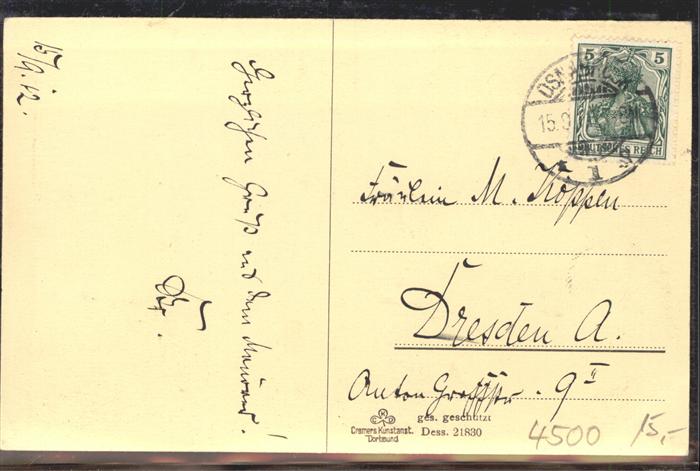 15/9.12.
Herzlichen Gruß aus dem
5
5
DEUTSCHES REICH
OSNABRÜCK
15.9
1
Fräulein M. Köppen
Dresden A.
Anton Graffstr. 9 II
CKD
Cramers Kunstanst.
Dortmund
ges. geschützt
Dess. 21830
4500
15,-